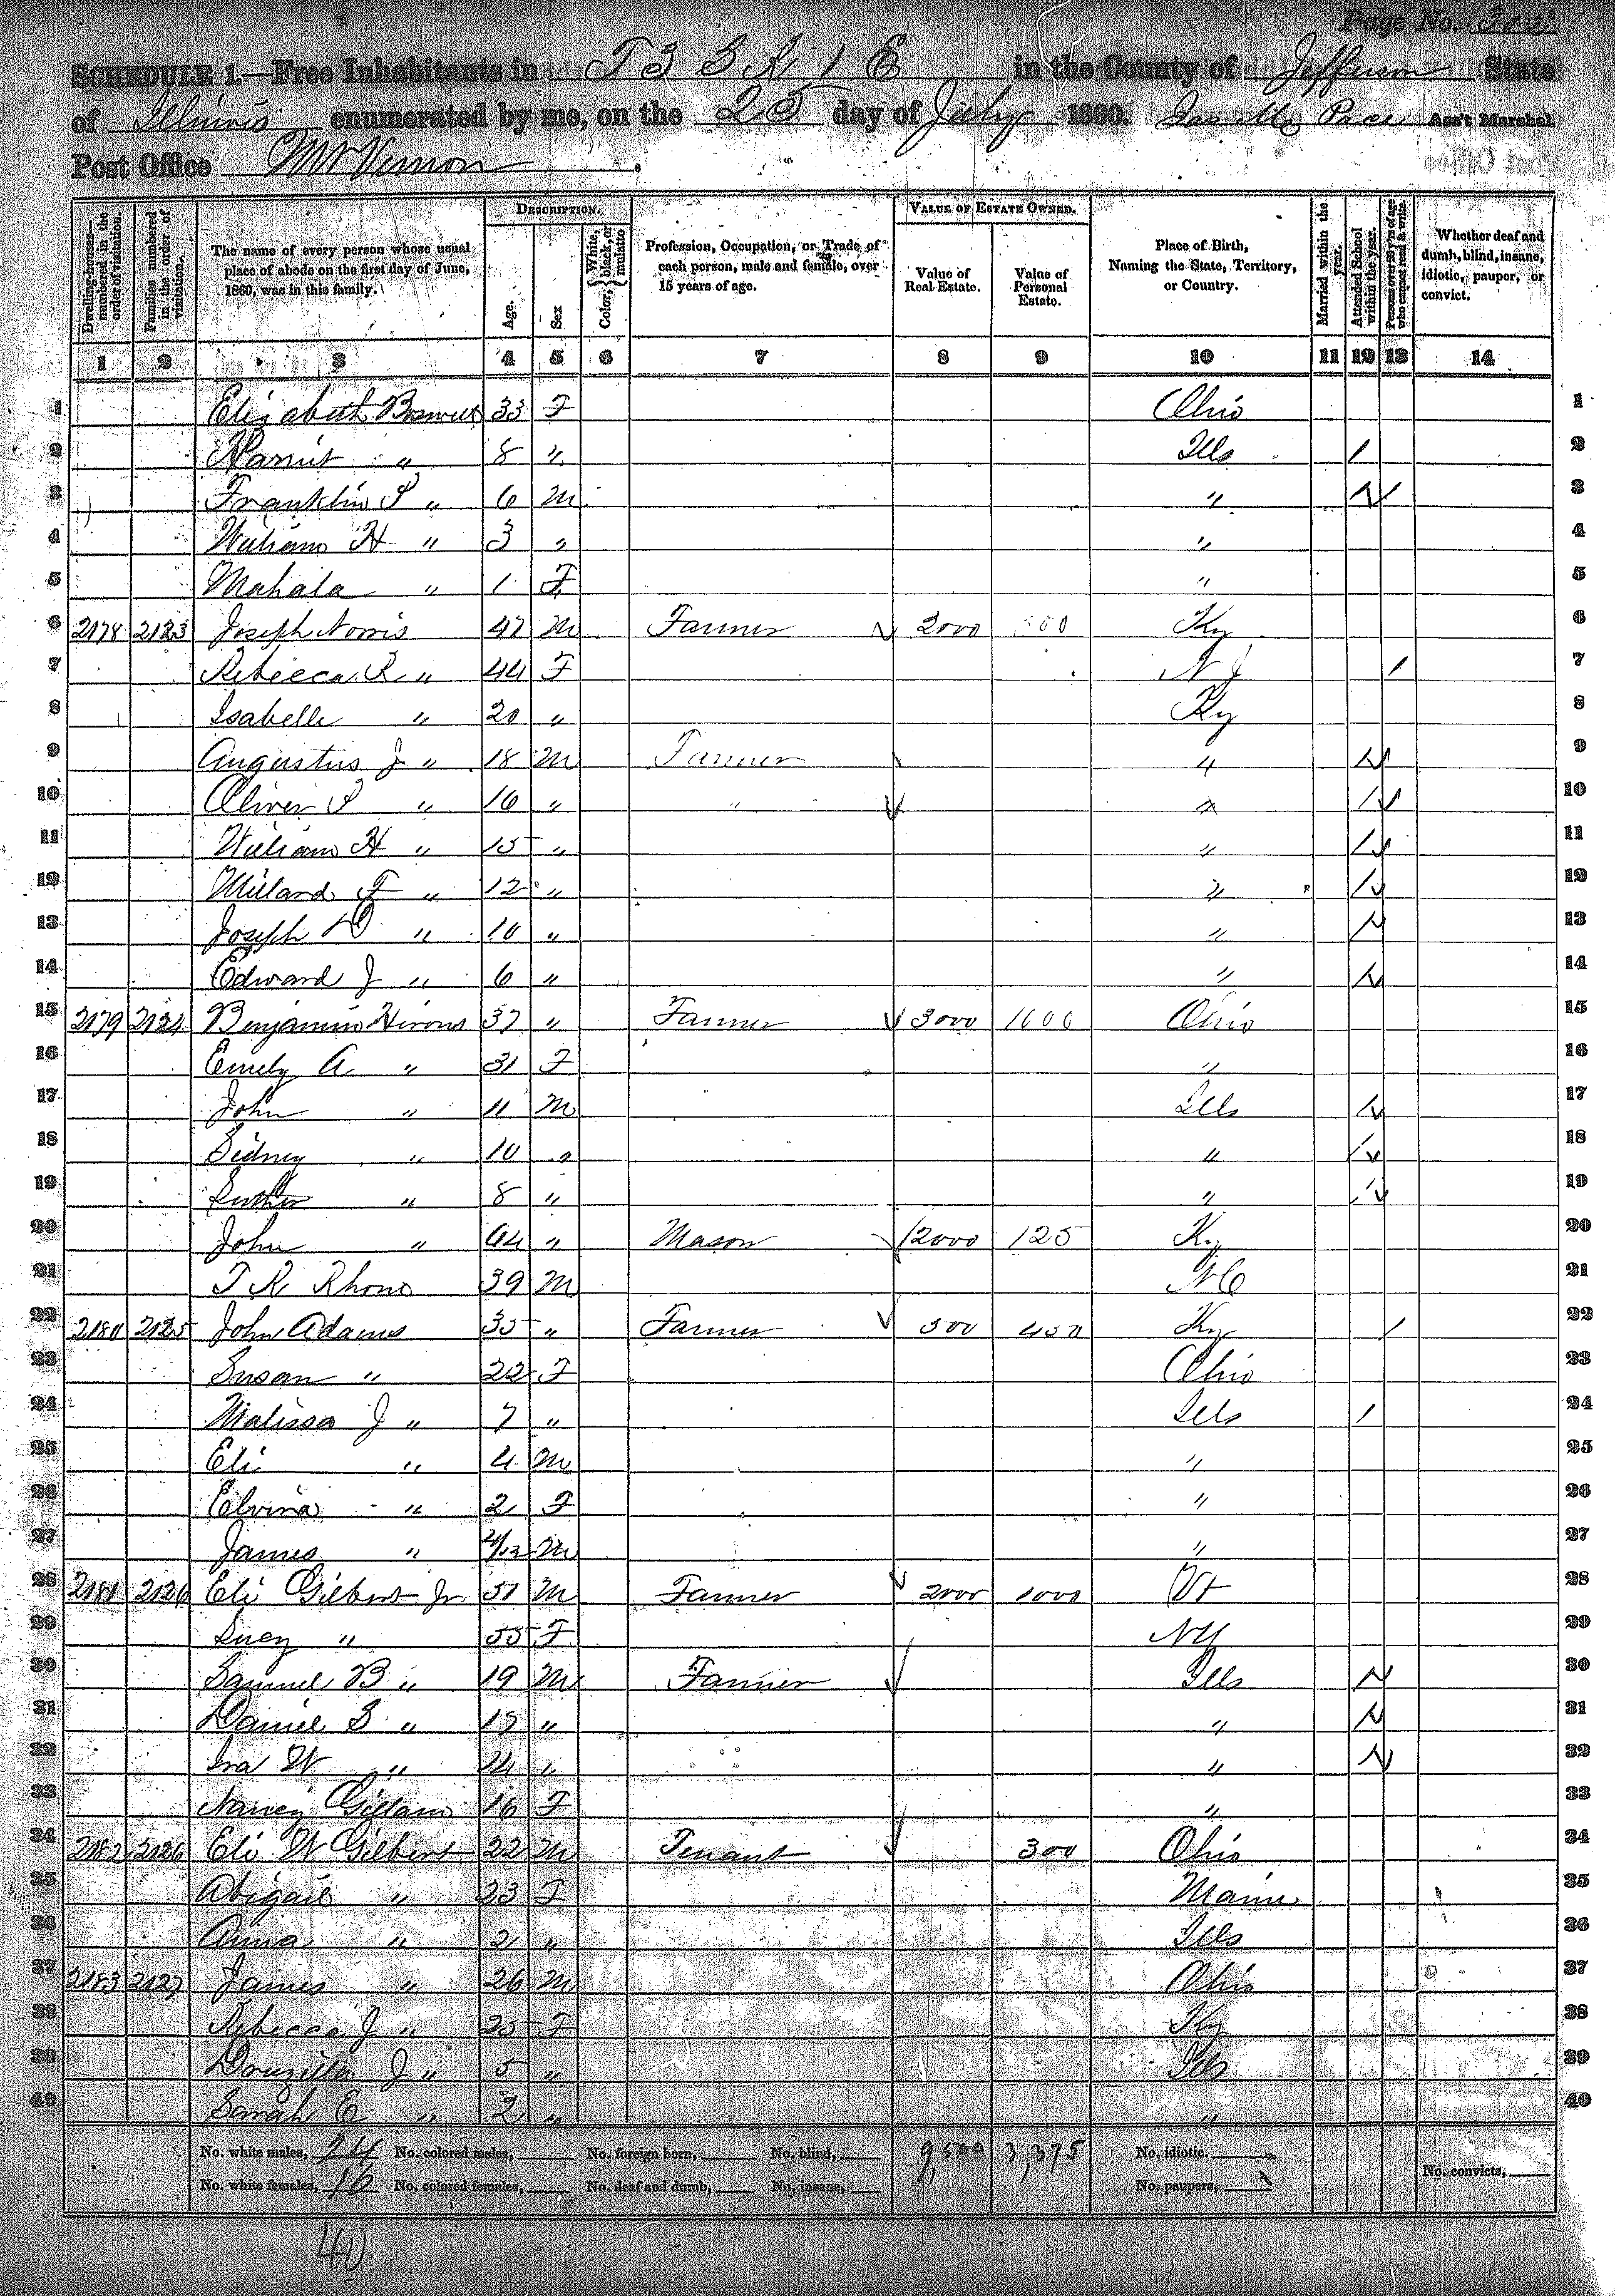 Page No. 302
SCHEDULE 1.—Free Inhabitants in T 3 S R 1 E in the County of Jefferson State
of Illinois enumerated by me, on the 25 day of July 1860. Pace Ass't Marshal
Post Office Mt Vernon.
DESCRIPTION. VALUE OF ESTATE OWNED.
Dwelling-houses—numbered in the order of visitation. Families numbered in the order of visitation. The name of every person whose usual place of abode on the first day of June, 1860, was in this family. Age. Sex Color, White, black, or mulatto Profession, Occupation, or Trade of each person, male and female, over 15 years of age. Value of Real Estate. Value of Personal Estate. Place of Birth, Naming the State, Territory, or Country. Married within the year. Attended School within the year. Persons over 20 y'rs of age who cannot read & write. Whether deaf and dumb, blind, insane, idiotic, pauper, or convict.
1 2 3 4 5 6 7 8 9 10 11 12 13 14
1 Elizabeth 33 F Ohio 1
2 Harriet " 8 " Ills / 2
3 Franklin P " 6 M " / 3
4 William H " 3 " " 4
5 Mahala " 1 F " 5
6 2178 2123 Joseph Norris 47 M Farmer 2000 Ky 6
7 Rebecca R " 44 F N J / 7
8 Isabelle " 20 " Ky 8
9 Augustus J " 18 M Farmer " / 9
10 Oliver P " 16 " " " / 10
11 William H " 15 " " / 11
12 Millard F " 12 " " / 12
13 Joseph D " 10 " " / 13
14 Edward J " 6 " " / 14
15 2179 2124 Benjamin Hirons 37 " Farmer 3000 1000 Ohio 15
16 Emely A " 31 F " 16
17 John " 11 M Ills / 17
18 Sidney " 10 " " / 18
19 Luther " 8 " " / 19
20 John " 64 " Mason 2000 125 Ky 20
21 T R 39 M N C 21
22 2180 2125 John Adams 35 " Farmer 500 450 Ky / 22
23 Susan " 22 F Ohio 23
24 Malissa J " 7 " Ills / 24
25 Eli " 4 M " 25
26 Elvina " 2 F " 26
27 James " /12 M " 27
28 2181 2126 Eli Gilbert Jr 51 M Farmer 2000 1000 Vt 28
29 Lucy " 55 F NY 29
30 Samuel B " 19 M Farmer Ills / 30
31 Daniel S " 15 " " / 31
32 Ira W " 14 " " / 32
33 Nancy Gillam 16 F " 33
34 2182 2126 Eli W Gilbert 22 M Tenant 300 Ohio 34
35 Abigail " 23 F Maine 35
36 Anna " 2 " Ills 36
37 2183 2127 James " 26 M Ohio 37
38 Rebecca J " 25 F Ky 38
39 Druzilla J " 5 " Ills 39
40 Sarah E " 2 " " 40
No. white males, 24 No. colored males, No. foreign born, No. blind, 9,500 3,375 No. idiotic.
No. white females, 16 No. colored females, No. deaf and dumb, No. insane, No. paupers, No. convicts,
40